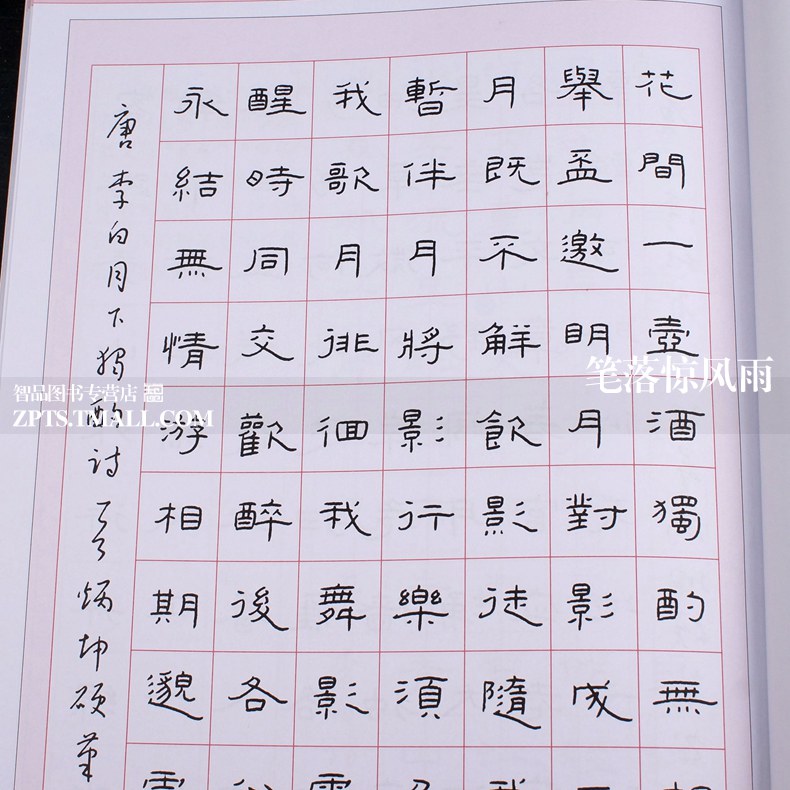 花間一壺酒獨酌無
舉盃邀明月對影成
月既不解飲影徒隨
暫伴月將影行樂須
我歌月徘徊我舞影
醒時同交歡醉後各
永結無情游相期邈
唐李白月下獨酌詩 炳坤硬筆
笔落惊风雨
智品图书专营店
ZPTS.TMALL.COM